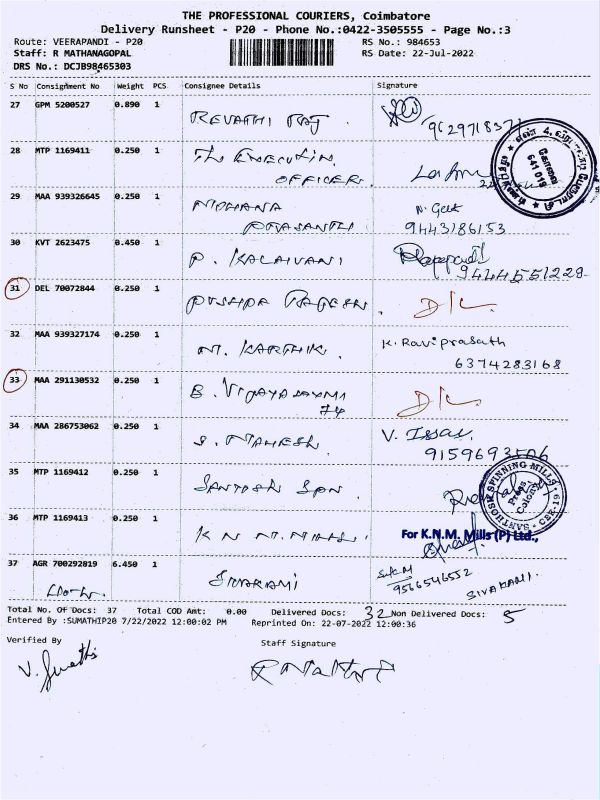 THE PROFESSIONAL COURIERS, Coimbatore
Delivery Runsheet - P20 - Phone No.:0422-3505555 - Page No.:3
Route: VEERAPANDI - P20 RS No.: 984653
Staff: R MATHANAGOPAL RS Date: 22-Jul-2022
DRS No.: DCJB98465303
S No Consignment No Weight PCS Consignee Details Signature
27 GPM 5200527 0.890 1 REVATHI RAJ
28 MTP 1169411 0.250 1 The EXECUTIVE
OFFICER
29 MAA 939326645 0.250 1 MOHANA N. Geet
PRASANTH 9443186153
30 KVT 2623475 0.450 1 P. KALAIVANI
9444551229
31 DEL 70072844 0.250 1 PUSHPA RAJESH D/L
32 MAA 939327174 0.250 1 M. KARTHIK K. Raviprasath
6374283168
33 MAA 291130532 0.250 1 B. VIJAYALAXMI D/L
74
34 MAA 286753062 0.250 1 S. MAHESH V. Issac
35 MTP 1169412 0.250 1 SANTOSH SPN
SANTHOSH SPINNING MILLS
36 MTP 1169413 0.250 1 K N M MILLS For K.N.M. Mills (P) Ltd.,
37 AGR 700292819 6.450 1 SIVAKAMI
9566546552 SIVAKAMI
Total No. Of Docs: 37 Total COD Amt: 0.00 Delivered Docs: 32 Non Delivered Docs: 5
Entered By :SUMATHIP20 7/22/2022 12:00:02 PM Reprinted On: 22-07-2022 12:00:36
Verified By Staff Signature